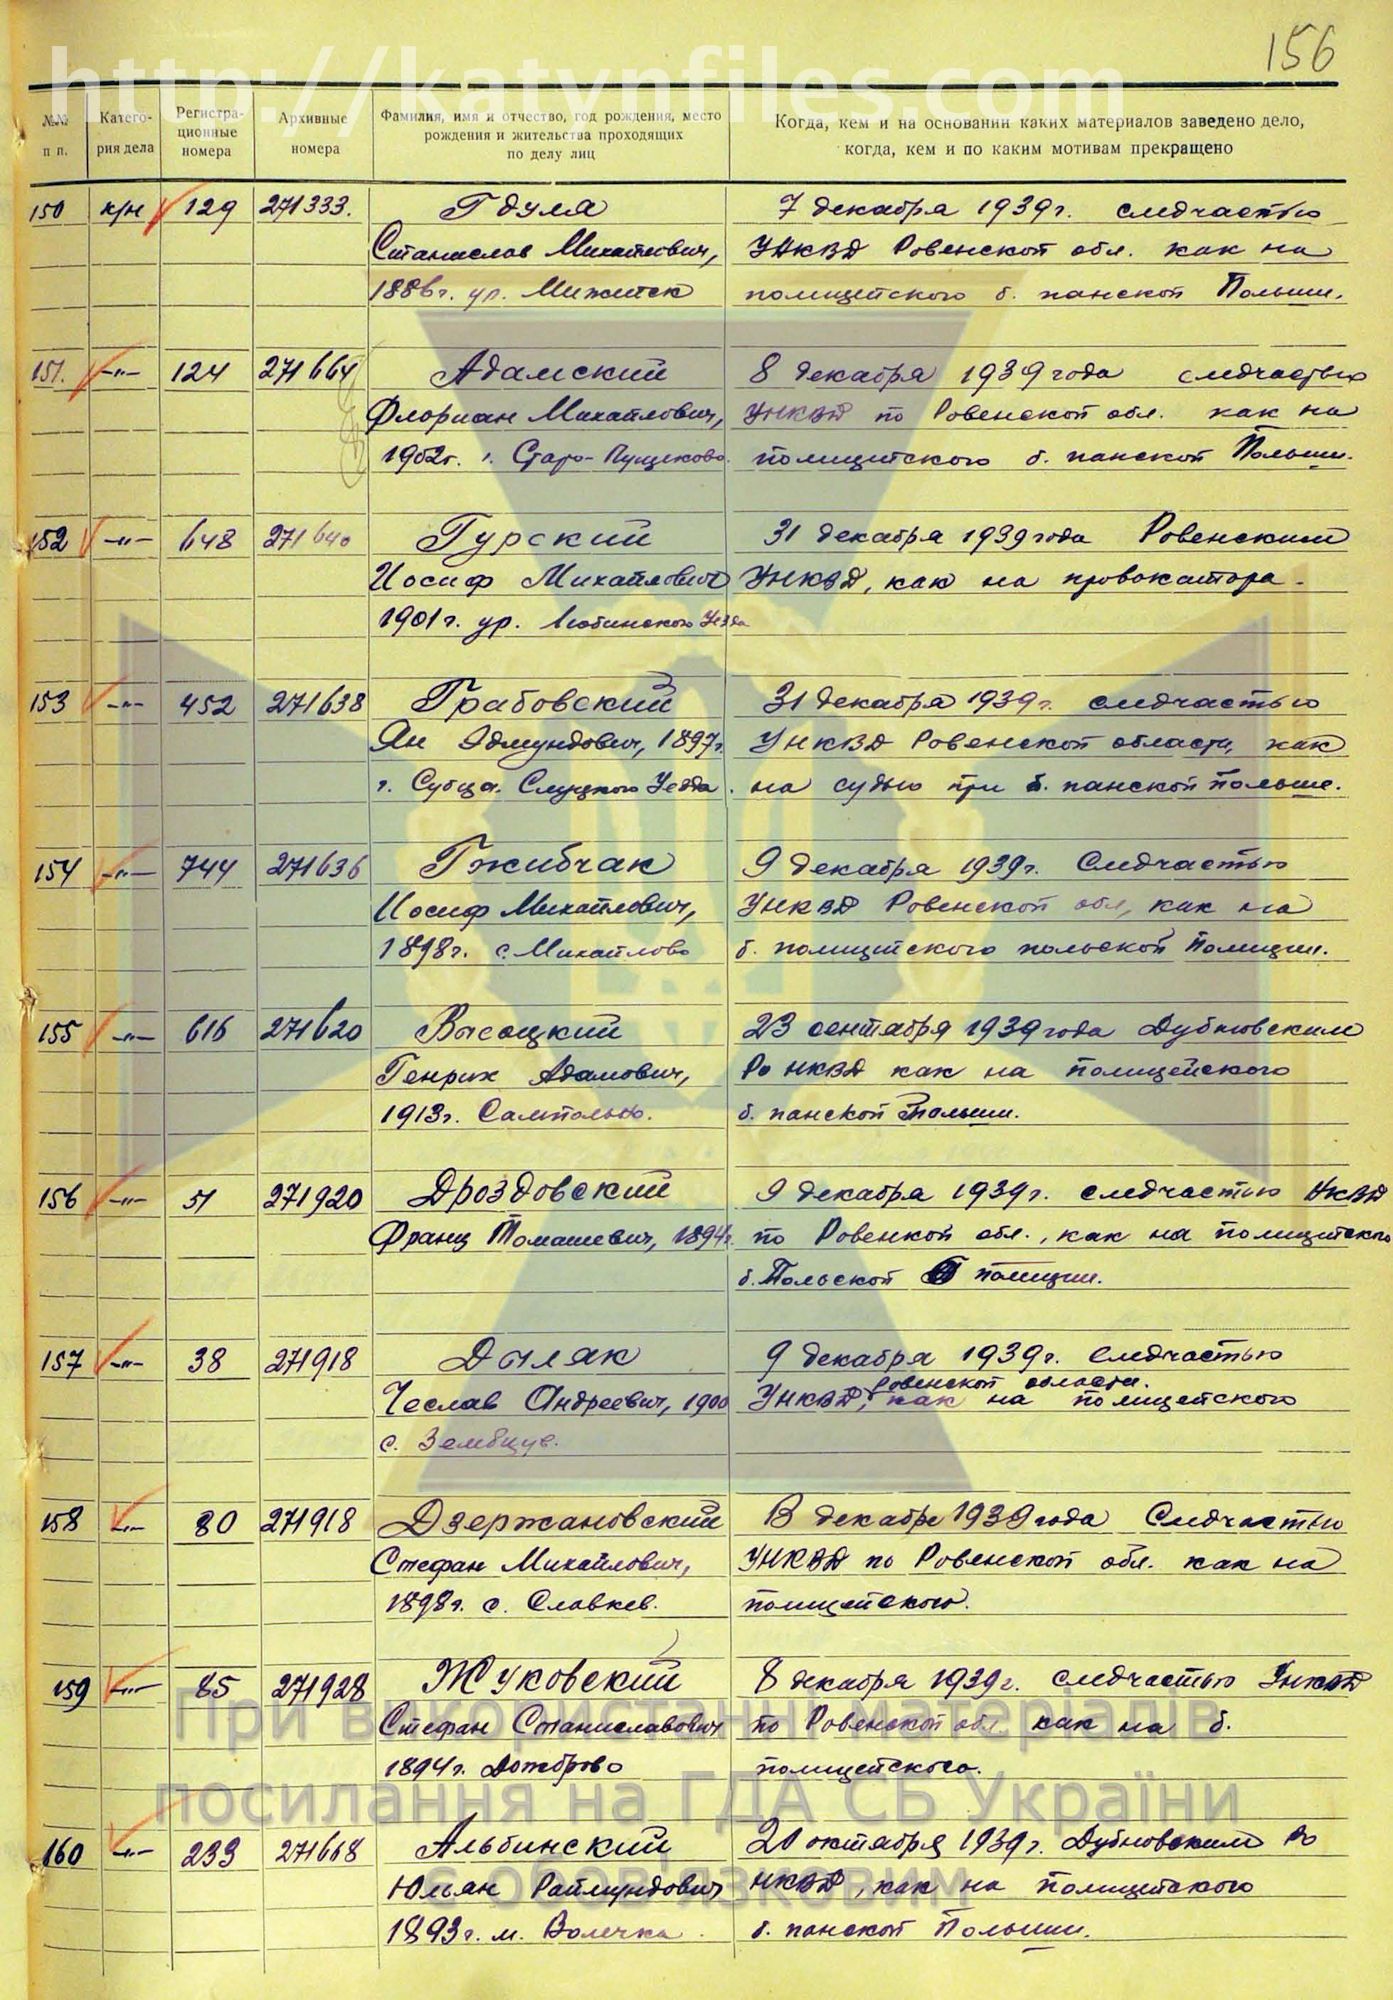 156
http://katynfiles.com
№№ п п.
Катего- рия дела
Регистра- ционные номера
Архивные номера
Фамилия, имя и отчество, год рождения, место рождения и жительства проходящих по делу лиц
Когда, кем и на основании каких материалов заведено дело, когда, кем и по каким мотивам прекращено
150 к/н 129 271333. Гдуля 7 декабря 1939 г. следчастью
Станислав Михайлович, УНКВД Ровенской обл. как на
1886 г. ур. полицейского б. панской Польши.
151. -"- 124 271664 Адамский 8 декабря 1939 года следчастью
Флориан Михайлович, УНКВД по Ровенской обл. как на
1902г. Старо- полицейского б. панской Польши.
152 -"- 648 271640 Гурский 31 декабря 1939 года Ровенским
Иосиф Михайлович УНКВД, как на провокатора.
1901 г. ур. Уезда
153 -"- 452 271638 Грабовский 31 декабря 1939 г. следчастью
Ян Эдмундович, 1897г. УНКВД Ровенской области, как
г. Слуцкого Уезда. на судью при б. панской Польше.
154 -"- 744 271636 Гжибчак 9 декабря 1939г. Следчастью
Иосиф Михайлович, УНКВД Ровенской обл, как на
1898г. с. Михайлово б. полицейского польской Полиции.
155 -"- 616 271620 Высоцкий 23 сентября 1939 года Дубновским
Генрих Адамович, Ро НКВД как на полицейского
1913г. б. панской Польши.
156 -"- 51 271920 Дроздовский 9 декабря 1939г. следчастью НКВД
Франц Томашевич, 1894г. по Ровенкой обл., как на полицейского
б. Польской полиции.
157 -"- 38 271918 Дыляк 9 декабря 1939г. следчастью
Ровенской области.
Чеслав Андреевич, 1900 УНКВД, как на полицейского
с.
158 -"- 80 271918 Дзержановский В декабре 1939 года Следчастью
Стефан Михайлович, УНКВД по Ровенской обл. как на
1898г. с. Славкев. полицейского.
159 -"- 85 271928 Жуковский 8 декабря 1939г. следчастью УНКВД
Стефан Станиславович по Ровенской обл. как на б.
1894г. полицейского.
160 -"- 233 271668 Альбинский 20 октября 1939г. Дубновским Ро
Юльян Раймундович НКВД, как на полицейского
1893г. м. Волочка. б. панской Польши.
При використанні матеріалів
посилання на ГДА СБ України
є обов'язковим